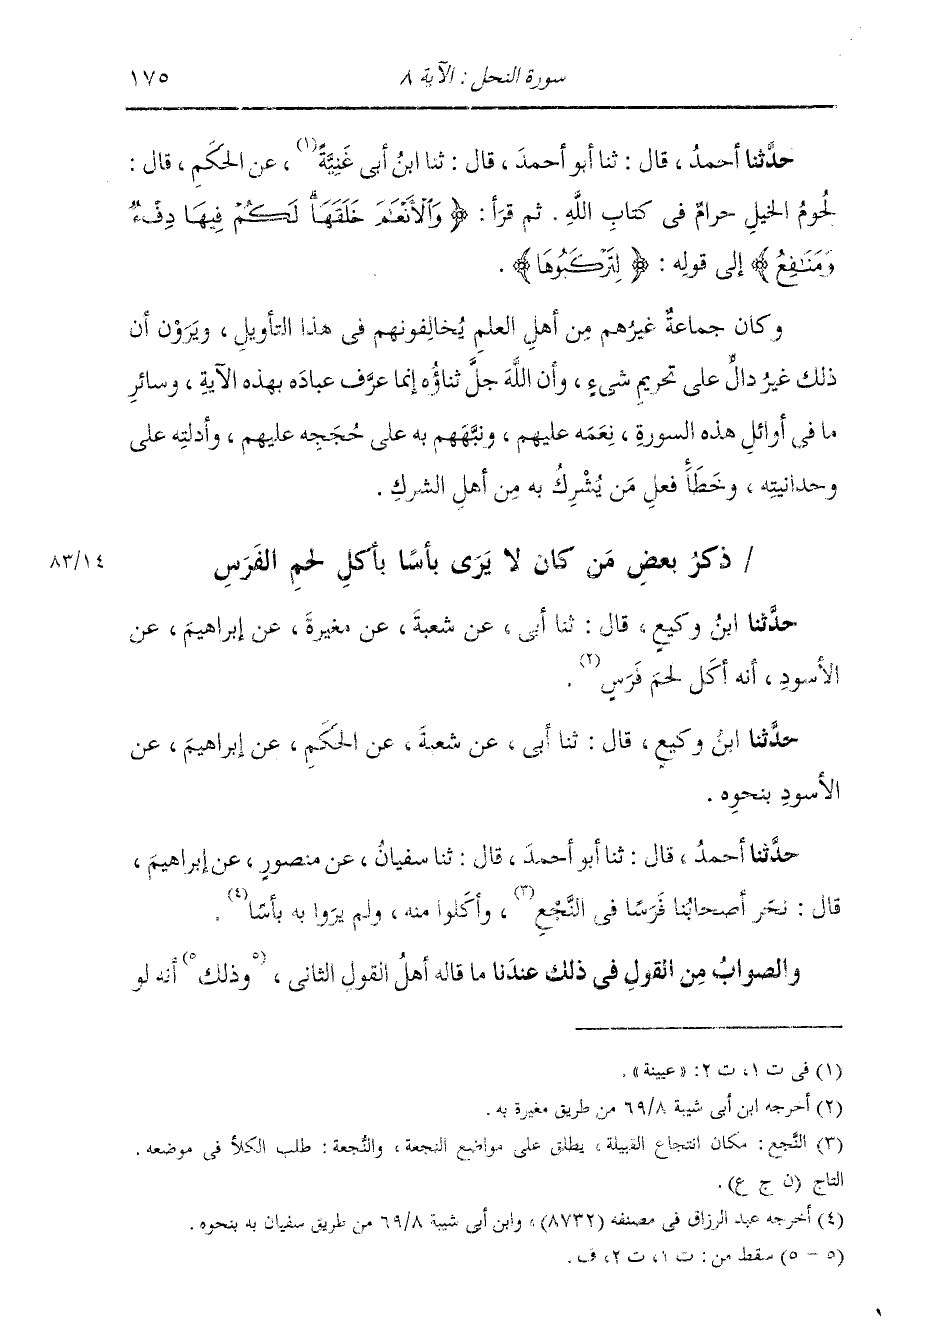 سورة النحل : الآية ٨ ١٧٥
حدَّثنا أحمدُ ، قال : ثنا أبو أحمدَ ، قال : ثنا ابنُ أبى غَنِيَّةَ(١) ، عن الحكَمِ ، قال :
لحُومُ الخيلِ حرامٌ فى كتابِ اللَّهِ . ثم قرَأ : ﴿ وَٱلْأَنْعَٰمَ خَلَقَهَاۗ لَكُمْ فِيهَا دِفْءٌ
وَمَنَٰفِعُ ﴾ إلى قولِه : ﴿ لِتَرْكَبُوهَا ﴾ .
وكان جماعةٌ غيرُهم مِن أهلِ العلمِ يُخالِفونهم فى هذا التأويلِ ، ويَرَوْن أن
ذلك غيرُ دالٍّ على تحريمِ شىءٍ ، وأن اللَّهَ جلَّ ثناؤُه إنما عرَّف عبادَه بهذه الآيةِ ، وسائرِ
ما فى أوائلِ هذه السورةِ ، نِعَمَه عليهم ، ونبَّهَهم به على حُجَجِه عليهم ، وأدلتِه على
وحدانيتِه ، وخَطَأَ فعلِ مَن يُشْرِكُ به مِن أهلِ الشركِ .
/ ذكرُ بعضِ مَن كان لا يَرَى بأسًا بأكلِ لحمِ الفَرَسِ ٨٣/١٤
حدَّثنا ابنُ وكيعٍ ، قال : ثنا أبى ، عن شعبةَ ، عن مغيرةَ ، عن إبراهيمَ ، عن
الأسودِ ، أنه أكَل لحمَ فَرَسٍ(٢) .
حدَّثنا ابنُ وكيعٍ ، قال : ثنا أبى ، عن شعبةَ ، عن الحكَمِ ، عن إبراهيمَ ، عن
الأسودِ بنحوِه .
حدَّثنا أحمدُ ، قال : ثنا أبو أحمدَ ، قال : ثنا سفيانُ ، عن منصورٍ ، عن إبراهيمَ ،
قال : نحَر أصحابُنا فَرَسًا فى النَّجْعِ(٣) ، وأكَلوا منه ، ولم يرَوا به بأسًا(٤) .
والصوابُ مِن القولِ فى ذلك عندَنا ما قاله أهلُ القولِ الثانى ، (٥وذلك٥) أنه لو
(١) فى ت ١، ت ٢: « عيينة » .
(٢) أخرجه ابن أبى شيبة ٦٩/٨ من طريق مغيرة به .
(٣) النَّجع : مكان انتجاع القبيلة ، يطلق على مواضع النجعة ، والنُّجعة : طلب الكلأ فى موضعه .
التاج (ن ج ع) .
(٤) أخرجه عبد الرزاق فى مصنفه (٨٧٣٢) ، وابن أبى شيبة ٦٩/٨ من طريق سفيان به بنحوه .
(٥ - ٥) سقط من : ت ١، ت ٢، ف .